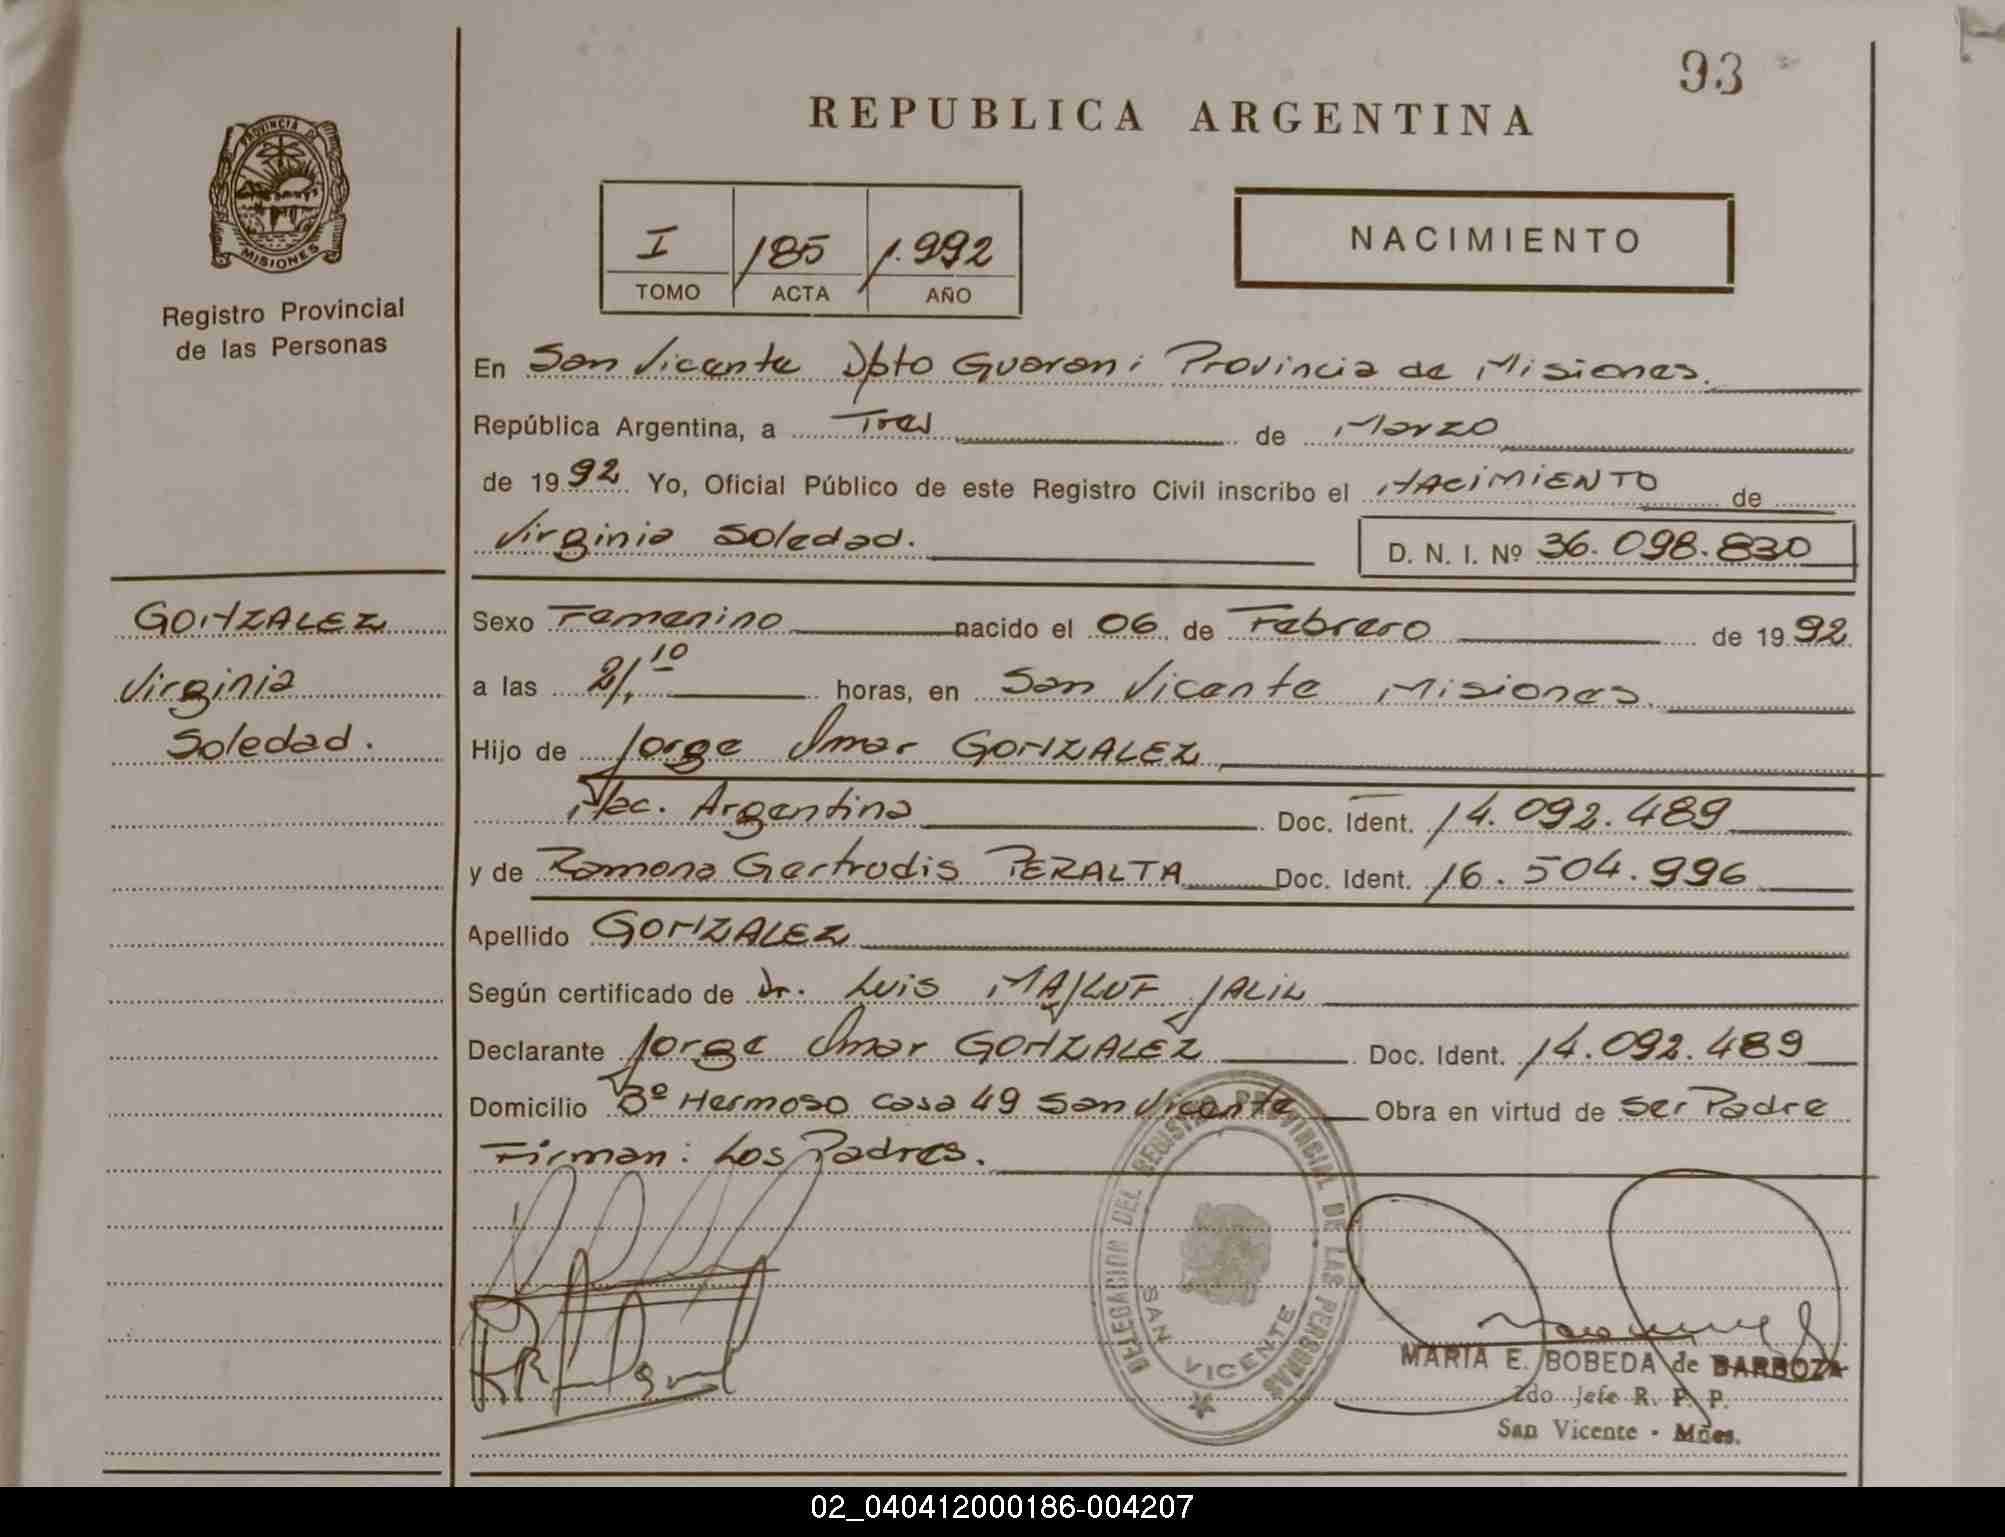 93
REPUBLICA ARGENTINA
PROVINCIA DE
MISIONES
Registro Provincial
de las Personas
I 185 1.992
TOMO ACTA AÑO
NACIMIENTO
En San Vicente Dpto Guarani Provincia de Misiones.
República Argentina, a Tres de Marzo
de 1992 Yo, Oficial Público de este Registro Civil inscribo el NACIMIENTO de
Virginia Soledad.
D. N. I. Nº 36.098.830
GONZALEZ
Virginia
Soledad.
Sexo Femenino nacido el 06 de Febrero de 1992
a las 21,10 horas, en San Vicente Misiones.
Hijo de Jorge Omar GONZALEZ
Nac. Argentina Doc. Ident. 14.092.489
y de Ramona Gertrudis PERALTA Doc. Ident. 16.504.996
Apellido GONZALEZ
Según certificado de Dr. Luis MAJLUF JALIL
Declarante Jorge Omar GONZALEZ Doc. Ident. 14.092.489
Domicilio Bº Hermoso casa 49 San Vicente Obra en virtud de ser Padre
Firman: Los Padres.
DELEGACION DEL REGISTRO PROVINCIAL DE LAS PERSONAS
SAN VICENTE
MARIA E. BOBEDA de BARBOZA
2do Jefe R. P. P.
San Vicente - Mnes.
02_040412000186-004207